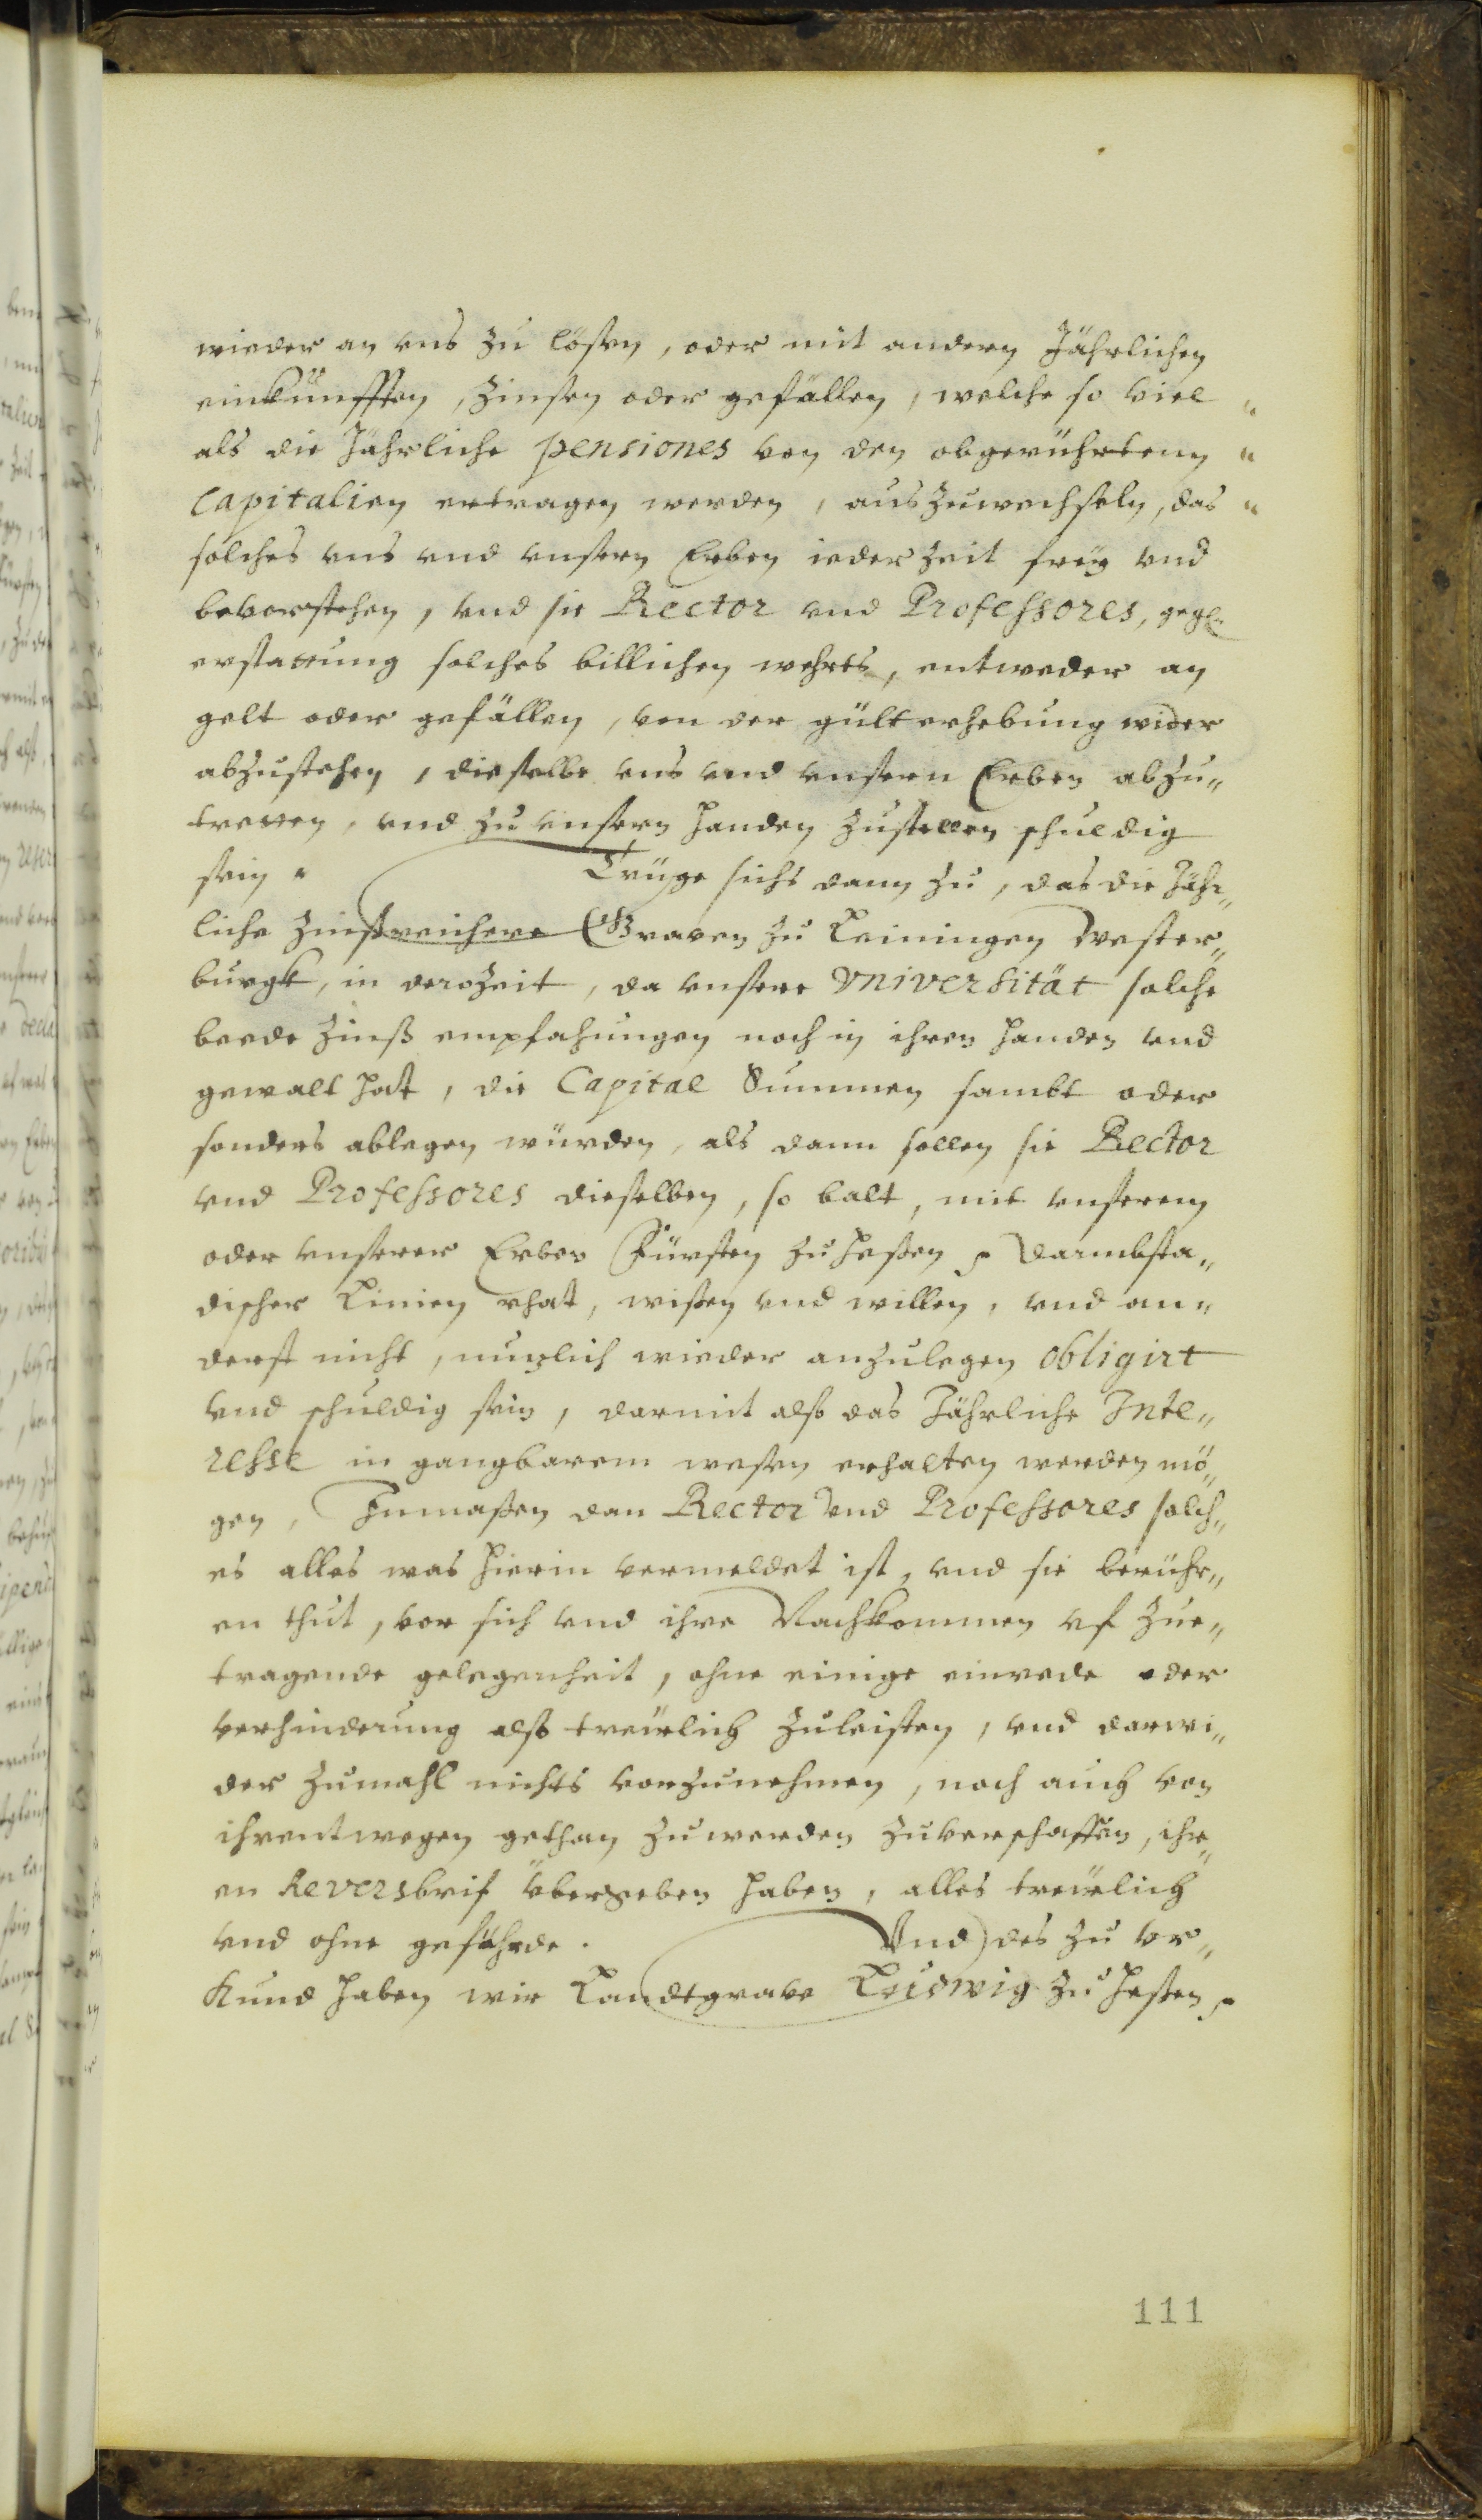 wieder an vns zu lößen, oder mit andern Jährlichen
einkünfften, Zinsen oder gefällen, welche so viel "
als die Jährliche pensiones von den obgerührtenn "
Capitalien ertragen werden, auszuwechseln, das "
solches vns vnd vnsern Erben ieder Zeit frey vnd
bevorstehen, vnd sie Rector vnd Professores, gegen
erstattung solches billichen wehrts, entweder an
gelt oder gefällen, von der gülterhebung wider
abzustehen, dieselbe vns vnd vnsern Erben abzu„
tretten, vnd zu vnsern Handen zustellen schuldig
sein. Trüge sichs dann zu, das die Jähr„
liche Zinßreichere Graven zu Leiningen Wester„
burgk, in der Zeit, da vnsere Vniversität solche
beede Zinß empfahungen noch in ihren Handen vnd
gewalt hat, die Capital Summen sambt oder
sonders ablegen würden, als dann sollen sie Rector
vnd Professores dieselben, so balt, mit vnserem
oder vnserer Erben Fürsten zu Heßen Darmbsta„
discher Linien rhat, wißen vnd willen, vnd an„
derst nicht, nuzlich wieder anzulegen obligirt
vnd schuldig sein, darmit alß das Jährliche Inte„
resse in gangbarem wesen erhalten werden mö„
gen, Inmaßen dan Rector vnd Professores solch„
es alles was hierin vermeldet ist, vnd sie berühr„
en thut, vor sich vnd ihre Nachkommen vf zue„
tragende gelegenheit, ohne einige einrede oder
verhinderung alß treülich zuleisten, vnd darwi„
der zumahl nichts vorzunehmen, noch auch von
ihrentwegen gethan zuwerden zuverschaffen, ihr„
en Reversbrif übergeben haben, alles treülich
vnd ohne gefährde. Vnd des zu vr„
kund haben wir Landtgrave Ludwig zu Heßen
111